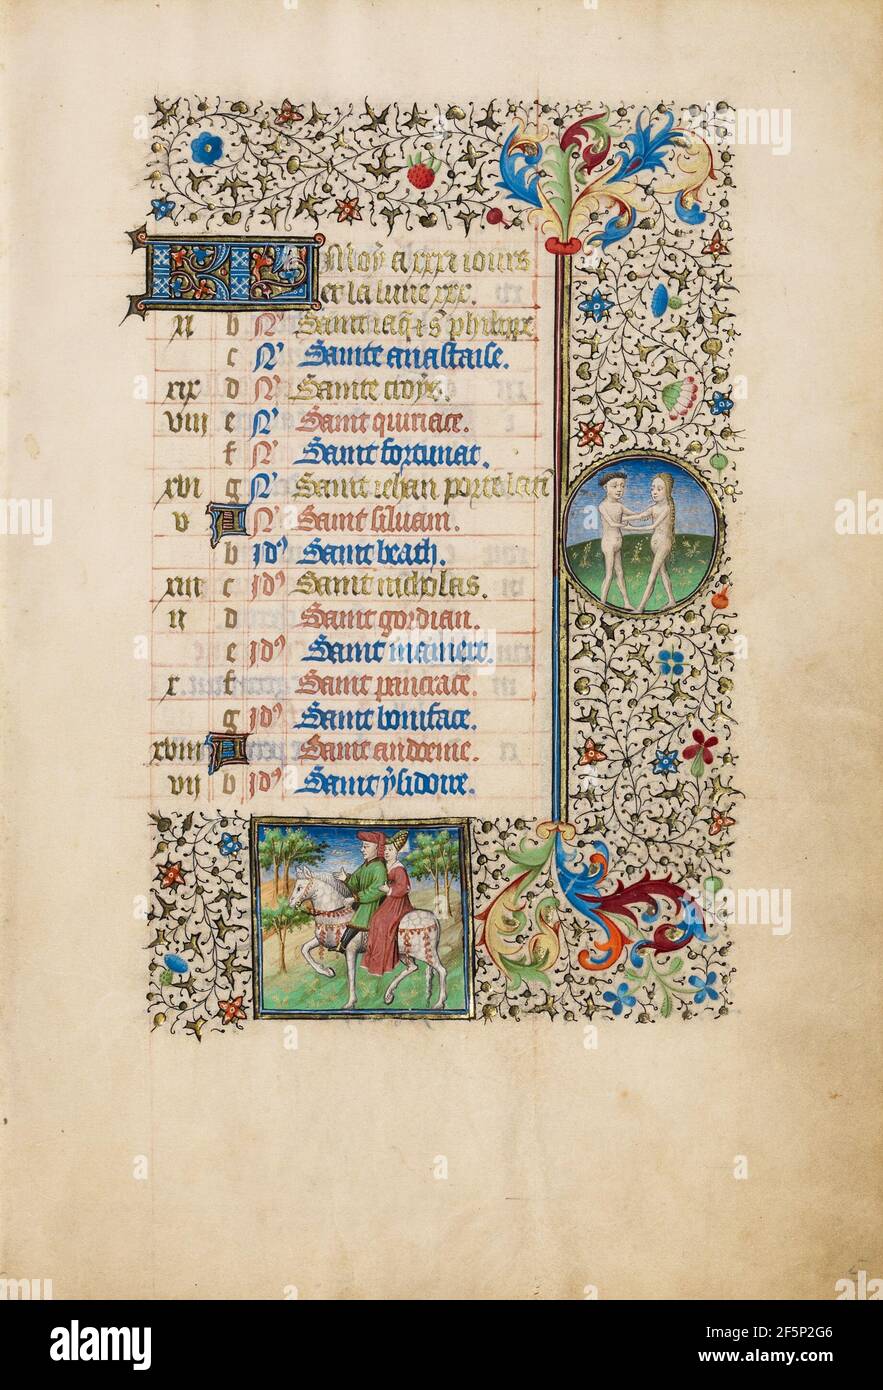 KL May a xxxi iours
et la lune xxx.
xi b N' Saint iaq̃ & s' phelippe
c N' Sainte anastaise.
xix d N' Sainte crois.
viii e N' Saint quiriace.
f N' Saint fortunat.
xvi g N' Saint iehan porte latĩ
v A N' Saint siluain.
b id9 Saint beath.
xiii c id9 Saint nicholas.
ii d Saint gordian.
e id9 Saint mamert.
x f id9 Saint pancrace.
g id9 Saint boniface.
xviii A id9 Saint andoenie.
vii b id9 Saint ysidoire.
a
alamy
alamy
Image ID: 2F5P2G6
www.alamy.com